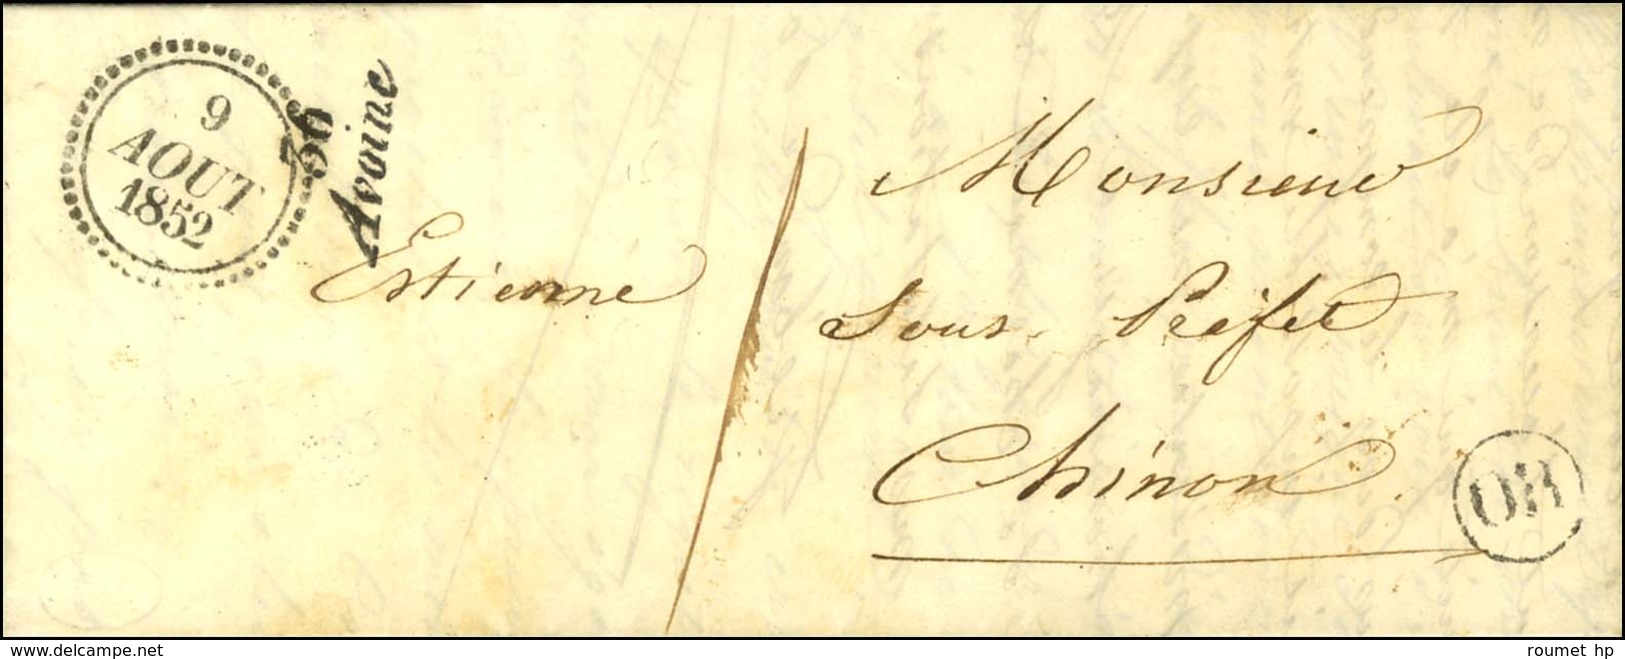 9
AOUT
1852
36
Avoine
Estienne
1
Monsieur
Sous-Préfet
Chinon
OR
www.delcampe.net
roumet hp